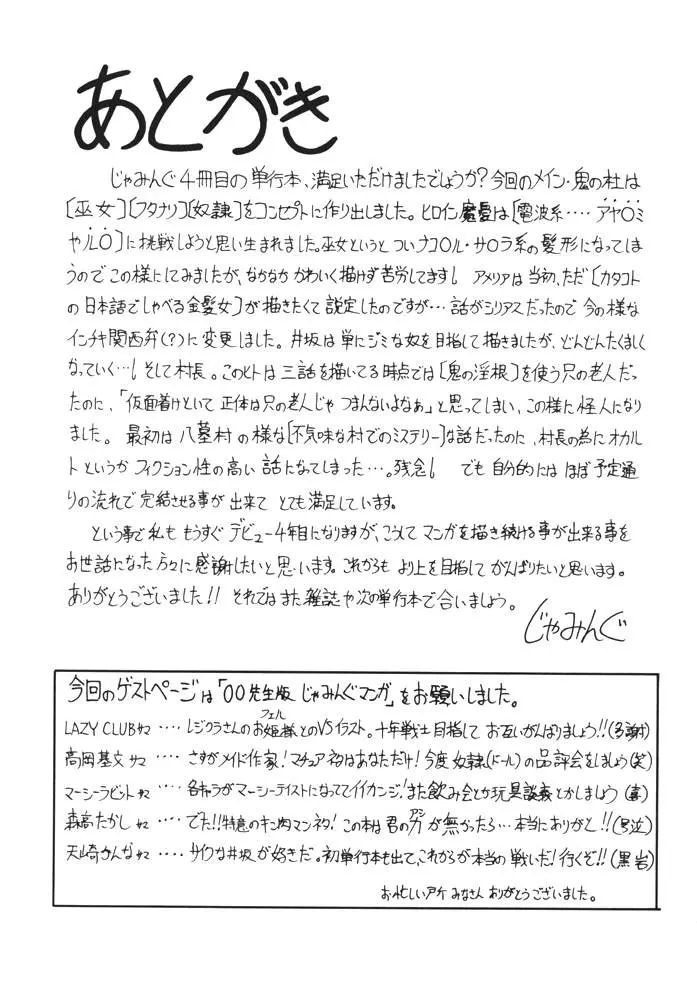 あとがき
じゃみんぐ4冊目の単行本、満足いただけましたでしょうか?今回のメイン・鬼の杜は
[巫女][フタナリ][奴隷]をコンセプトに作り出しました。ヒロイン魔憂は[電波系‥‥アヤ○ミ
やル○]に挑戦しようと思い生まれました。巫女というとついナコ○ル・サ○ラ系の髪形になってしま
うのでこの様にしてみましたが、なかなかかわいく描けず苦労してます! アメリアは当初、ただ[カタコト
の日本語でしゃべる金髪女]が描きたくて設定したのですが…話がシリアスだったので今の様な
インチキ関西弁(?)に変更しました。井坂は単にジミな奴を目指して描きましたが、どんどんたくましく
なっていく…!そして村長。このヒトは三話を描いてる時点では[鬼の淫根]を使う只の老人だっ
たのに、「仮面着けといて正体は只の老人じゃつまんないよなぁ」と思ってしまい、この様に怪人になり
ました。最初は八墓村の様な[不気味な村でのミステリー]な話だったのに、村長の為にオカル
トというかフィクション性の高い話になってしまった…。残念! でも自分的にはほぼ予定通
りの流れで完結させる事が出来てとても満足しています。
という事で私ももうすぐデビュー4年目になりますが、こうしてマンガを描き続ける事が出来る事を
お世話になった方々に感謝したいと思います。これからもより上を目指してがんばりたいと思います。
ありがとうございました!!それではまた雑誌や次の単行本で合いましょう。
じゃみんぐ
今回のゲストページは「○○先生版じゃみんぐマンガ」をお願いしました。
LAZY CLUBサマ‥‥レジクラさんのお姫様とのVSイラスト。十年戦士目指してお互いがんばりましょう!!(多謝)
フェル
高岡基文サマ‥‥さすがメイド作家!マチュア初はあなただけ!今度奴隷(ドール)の品評会をしましょう(笑)
マーシーラビットサマ‥‥各キャラがマーシーテイストになっててイイカンジ!また飲み会とか玩具談義とかしましょう(喜)
森高たかしサマ‥‥でた!!特意のキン肉マンネタ!この本は君の力が無かったら…本当にありがと!!(号泣)
天崎かんなサマ‥‥サイクな井坂が好きだ。初単行本も出て、これからが本当の戦いだ!行くぞ!!(黒岩)
お忙しい中みなさんありがとうございました。